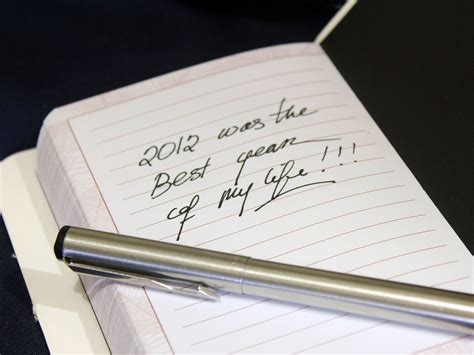 2012 was the
Best year
of my life!!!